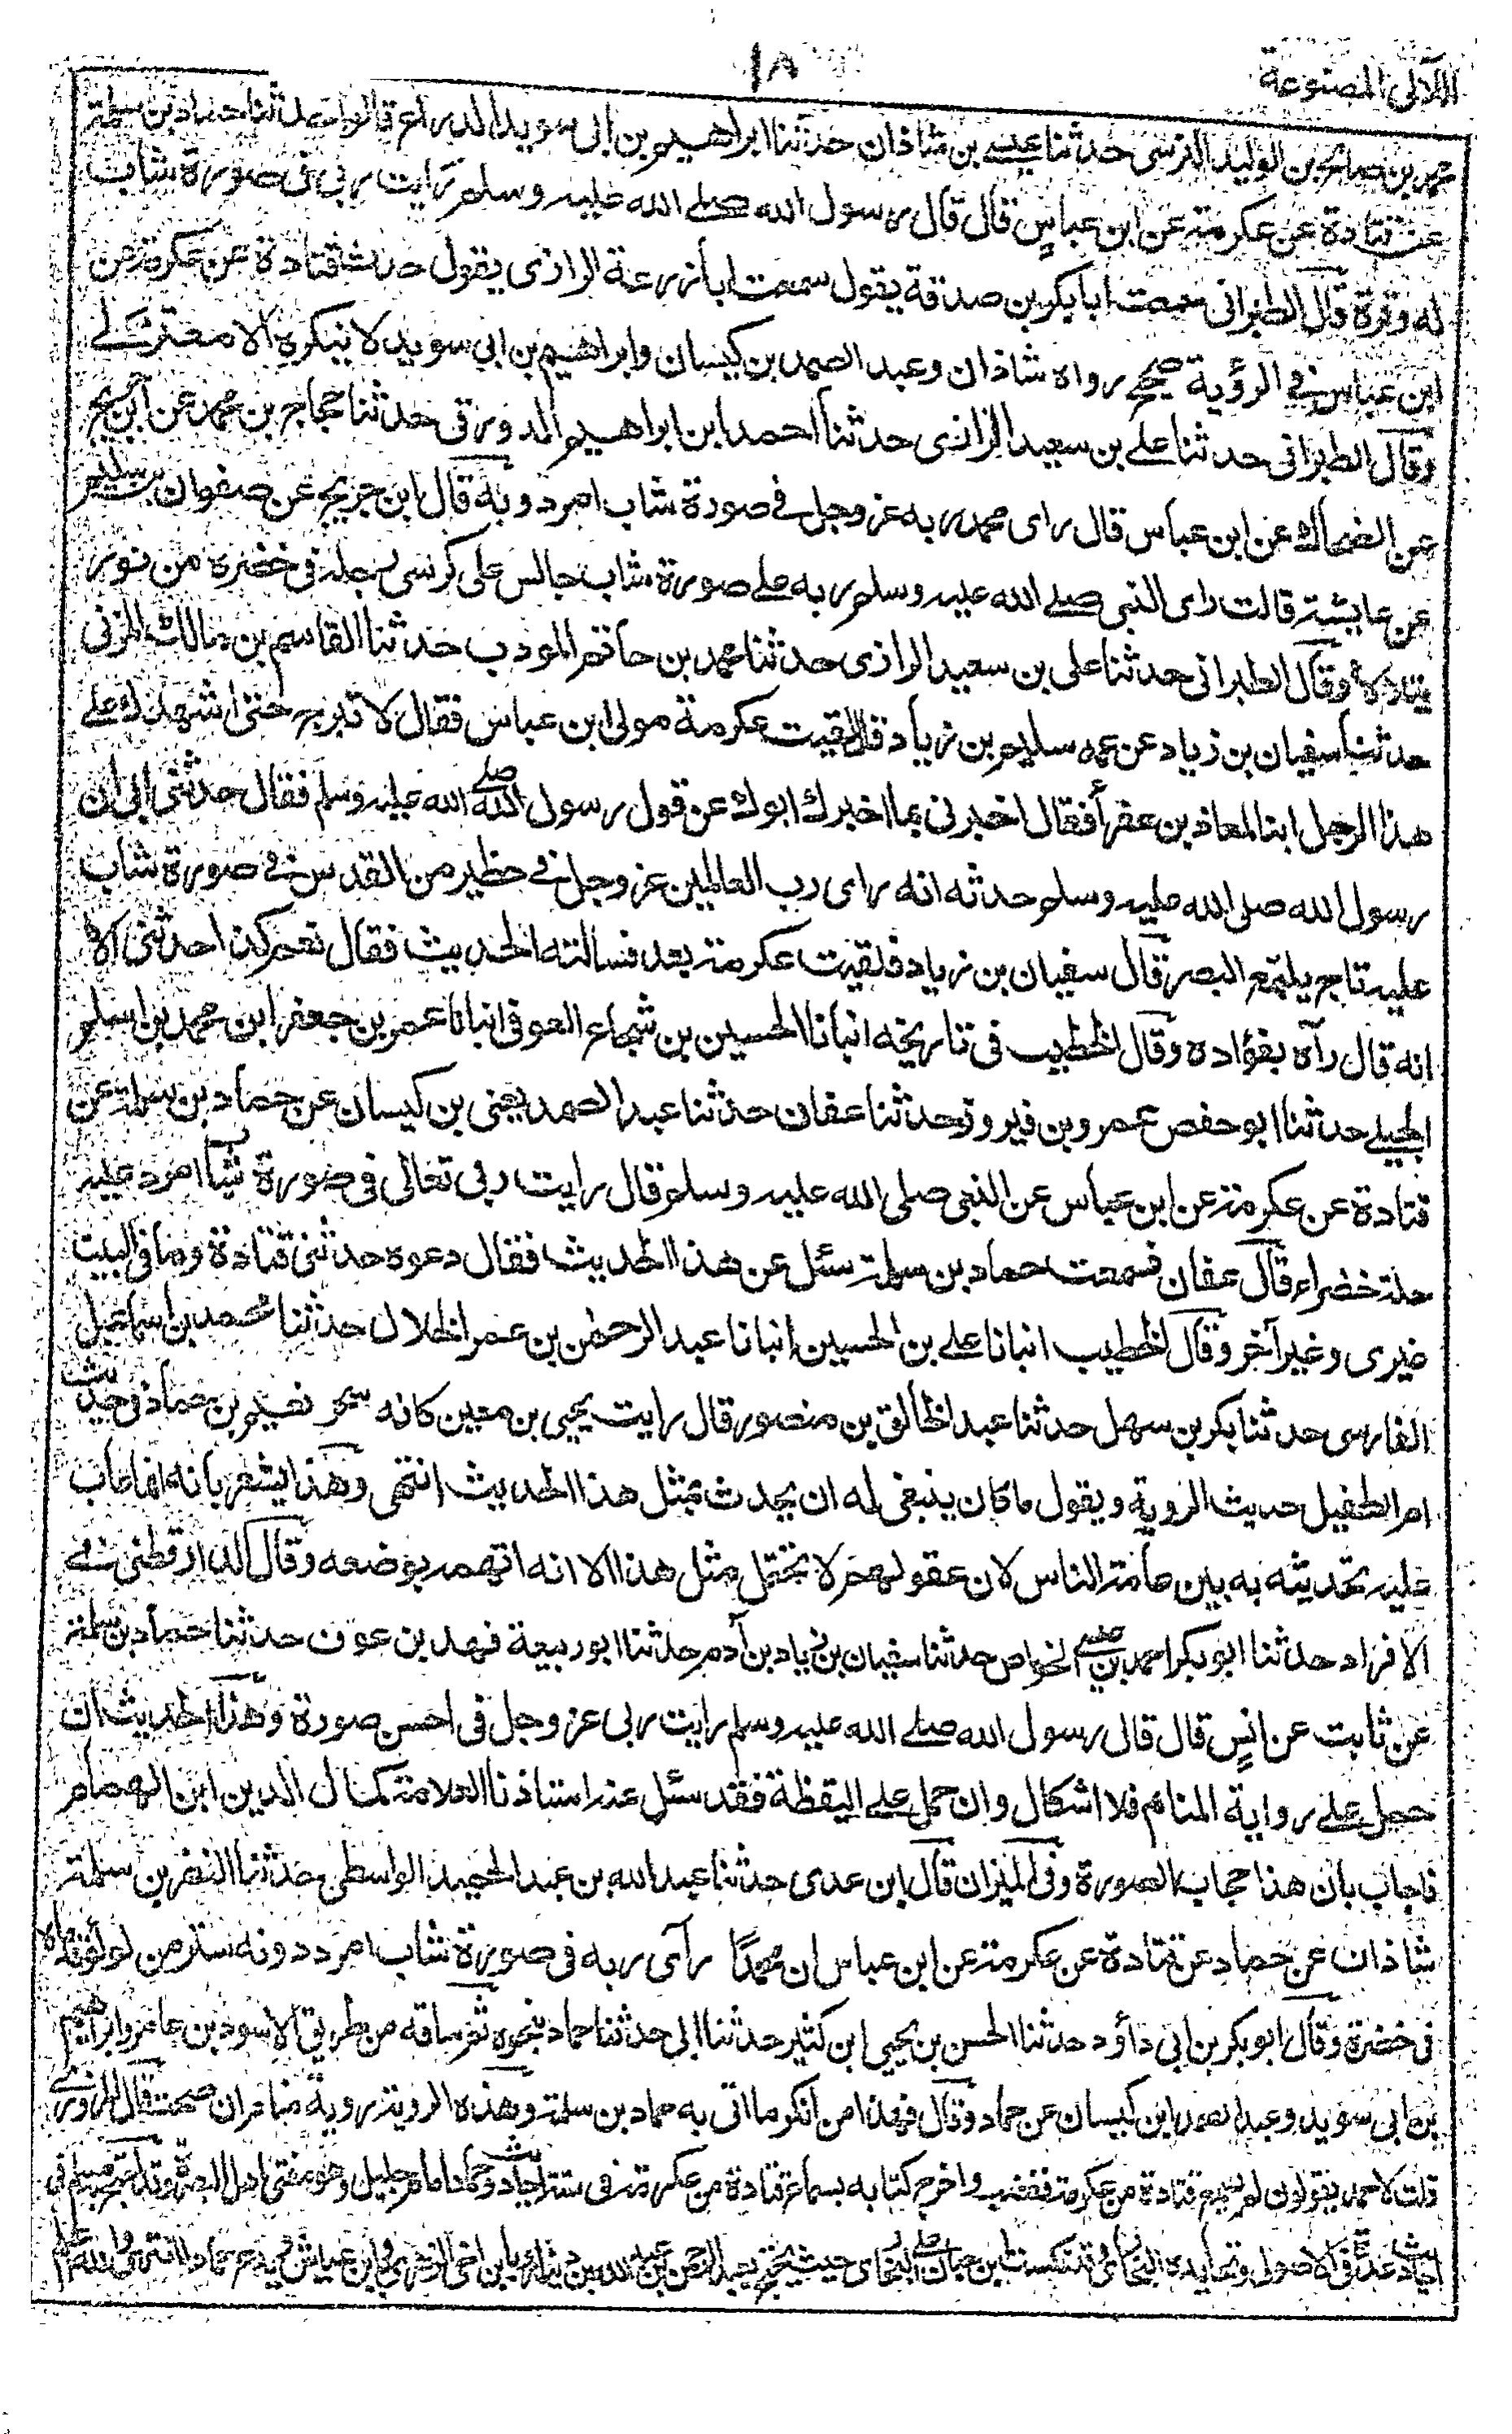 اللآلى المصنوعة
١٨
محمد بن صالح بن الوليد النرسى حدثنا عيسے بن شاذان حدثنا ابراهيم بن ابى سويد الدراع قال حدثنا حماد بن سلمة
عن قتادة عن عكرمة عن ابن عباسٍ قال قال رسول الله صلے الله عليه وسلم رايت ربى فى صورة شاب
له وفرة قال الطبرانى سمعت ابا بكر بن صدقة يقول سمعت ابا زرعة الرازى يقول حديث قتادة عن عكرمة عن
ابن عباس فے الرؤية صحيح رواه شاذان وعبد الصمد بن كيسان وابراهيم بن ابي سويد لا ينكره الا معتزلے
وقال الطبرانى حدثنا علے بن سعيد الرازى حدثنا احمد ابن ابراهيم الدورقى حدثنا حجاج بن محمد عن ابن جريج
عن الضحاك عن ابن عباس قال راى محمد ربه عز وجل فے صورة شاب امرد وبه قال ابن جريج عن صفوان بن سليم
عن عايشة قالت راى النبى صلے الله عليه وسلم ربه على صورة شاب جالس على كرسى رجله فى خضرة من نور
يتلألأ وقال الطبرانى حدثنا على بن سعيد الرازى حدثنا محمد بن حاتم المودب حدثنا القاسم بن مالك المزنى
حدثنا سفيان بن زياد عن عمه سليم بن زياد قال لقيت عكرمة مولى ابن عباس فقال لا تبرح حتى اشهدك على
هذا الرجل ابنا لمعاذ بن عفرأ فقال اخبرنى بما اخبرك ابوك عن قول رسول الله صلے الله عليه وسلم فقال حدثنى ابى ان
رسول الله صلى الله عليه وسلم حدثه انه راى رب العالمين عز وجل فے حظير من القدس فے صورة شاب
عليه تاج يلتمع البصر قال سفيان بن زياد فلقيت عكرمة بعد فسالته الحديث فقال نعم كذا حدثنى الا
انه قال رآه بفؤاده وقال الخطيب فى تاريخه انبانا الحسين بن شجاع العوفى انبانا عمر بن جعفر ابن محمد بن اسلم
الجبلے حدثنا ابو حفص عمرو بن فيروز حدثنا عفان حدثنا عبد الصمد يعنى بن كيسان عن حماد بن سلمة عن
قتادة عن عكرمة عن ابن عباس عن النبى صلى الله عليه وسلم قال رايت ربى تعالى فى صورة شاب امرد عليه
حلة خضراء قال عفان فسمعت حماد بن سلمة سئل عن هذا الحديث فقال دعوه حدثنى قتادة وما فى البيت
غيرى وغير آخر وقال الخطيب انبانا علے بن الحسين انبانا عبد الرحمن بن عمر الخلال حدثنا محمد بن اسماعيل
الفارسى حدثنا بكر بن سهل حدثنا عبد الخالق بن منصور قال رايت يحيى بن معين كانه يهجر نعيم بن حماد فى حديث
ام الطفيل حديث الروية ويقول ما كان ينبغى له ان يحدث بمثل هذا الحديث انتهى وهذا يشعر بانه انما عاب
عليه تحديثه به بين عامة الناس لان عقولهم لا تحتمل مثل هذا الا انه اتهمه بوضعه وقال الدارقطنى فے
الافراد حدثنا ابو بكر احمد بن الخواص حدثنا سفيان بن زياد بن آدم حدثنا ابو ربيعة فهد بن عوف حدثنا حماد بن سلمة
عن ثابت عن انسٍ قال قال رسول الله صلے الله عليه وسلم رايت ربى عز وجل فى احسن صورة وهذا الحديث ان
حمل على رواية المنام فلا اشكال وان حمل علے اليقظة فقد سئل عنه استاذنا العلامة كمال الدين ابن الهمام
فاجاب بان هذا حجاب الصورة وفى الميزان قال ابن عدى حدثنا عبد الله بن عبد الحميد الواسطى حدثنا النضر بن سلمة
شاذان عن حماد عن قتادة عن عكرمة عن ابن عباس ان محمدًا رآى ربه فى صورة شاب امرد دونه ستر من لؤلؤ
فى خضرة وقال ابو بكر بن ابى داؤد حدثنا الحسن بن يحيى ابن كثير حدثنا ابى حدثنا حماد بنحوه ثم ساقه من طريق الاسود بن عامر وابراهيم
بن ابى سويد وعبد الصمد ابن كيسان عن حماد وقال فهذا من انكر ما اتى به حماد بن سلمة وهذه الروية روية منام ان صحت قال المروزى
قلت لاحمد يقولون لم يسمع قتادة من عكرمة فغضب واخرج كتابه بسماع قتادة من عكرمة فى ستة احاديث وحماد امام جليل وهو مفتى اهل البصرة وقد احتج به مسلم فى
احاديث عدة فى الاصول وتحايده البخارى